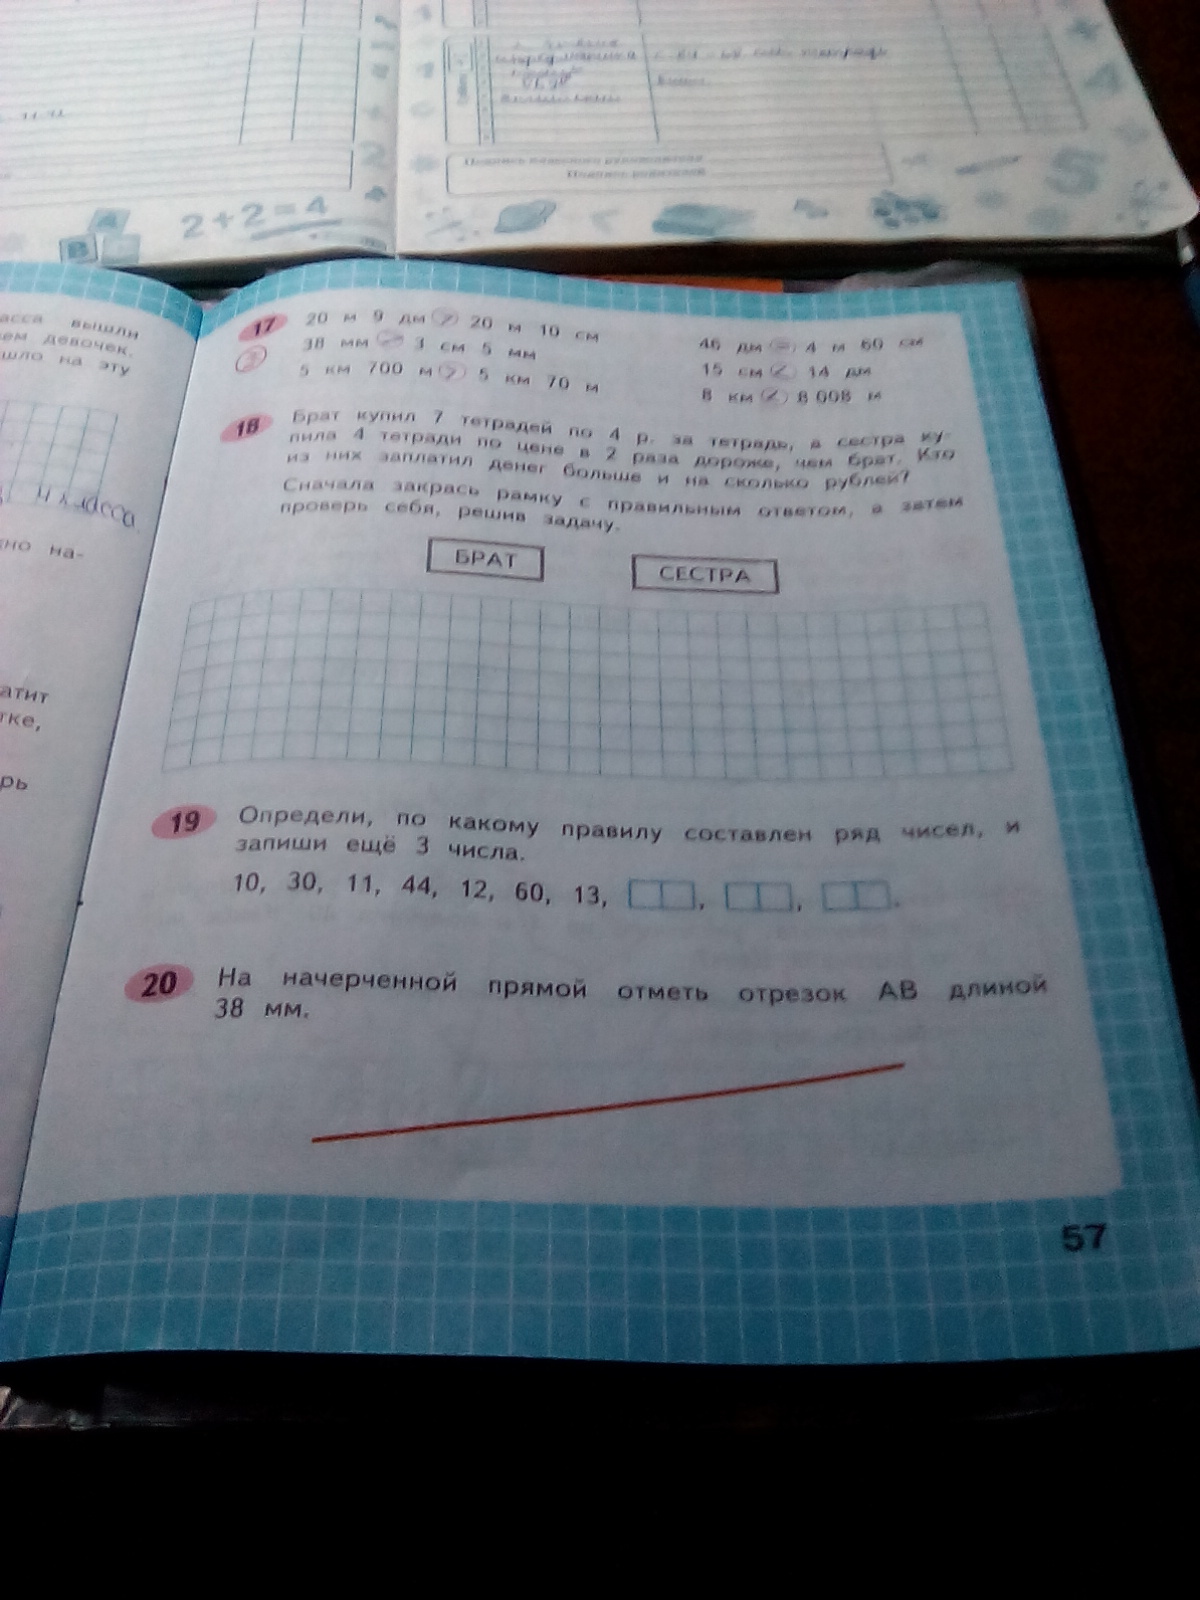 2+2=4
5
асса вышли
ем девочек.
шло на эту
4 класса
но на-
атит
тке,
рь
17 20 м 9 дм > 20 м 10 см
46 дм = 4 м 60 см
38 мм 3 см 5 мм
15 см < 14 дм
5 км 700 м > 5 км 70 м
8 км < 8 008 м
18 Брат купил 7 тетрадей по 4 р. за тетрадь, а сестра ку-
пила 4 тетради по цене в 2 раза дороже, чем брат. Кто
из них заплатил денег больше и на сколько рублей?
Сначала закрась рамку с правильным ответом, а затем
проверь себя, решив задачу.
БРАТ СЕСТРА
19 Определи, по какому правилу составлен ряд чисел, и
запиши ещё 3 числа.
10, 30, 11, 44, 12, 60, 13, , , .
20 На начерченной прямой отметь отрезок АВ длиной
38 мм.
57